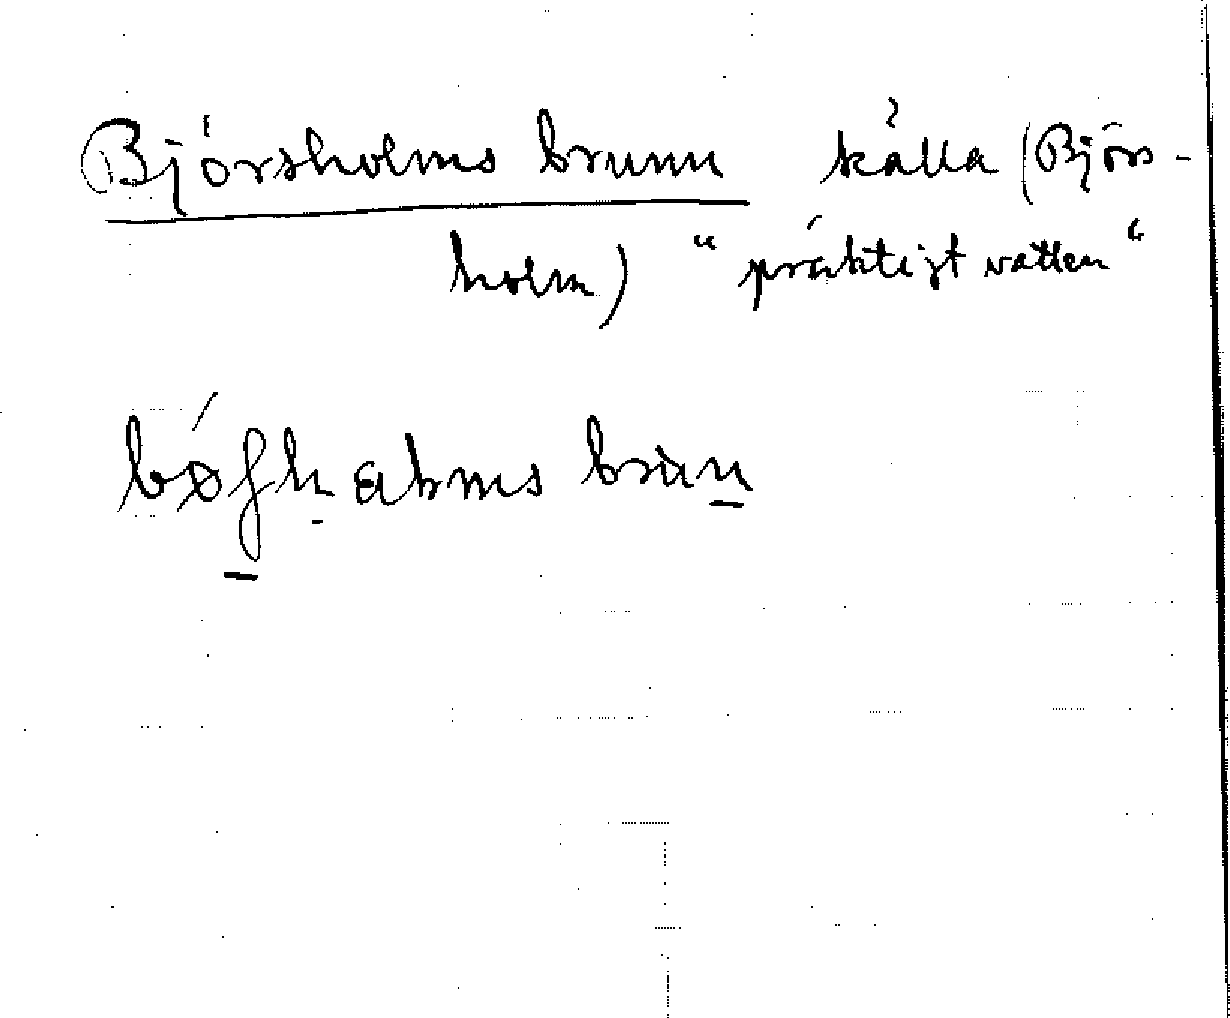 Björsholms brunn källa (Björs-
holm) "präktigt vatten"
brùn